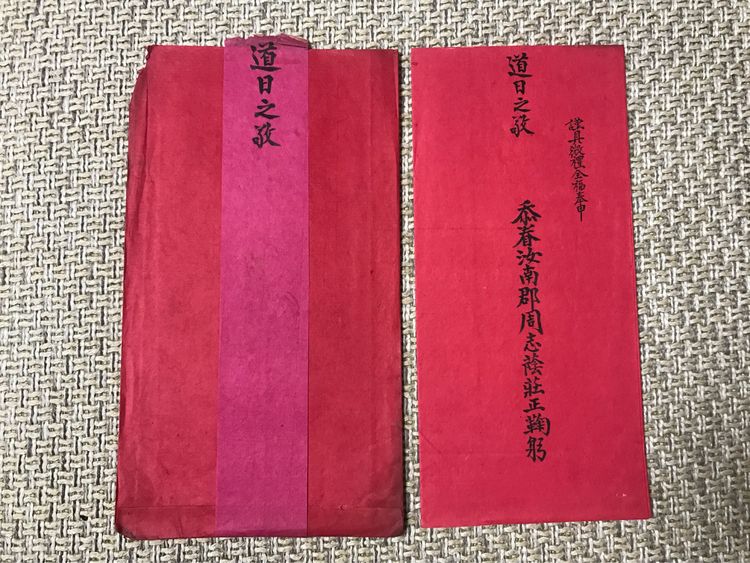 謹具微禮全福奉申
道日之敬
忝眷汝南郡周志蔭莊正鞠躬
道日之敬